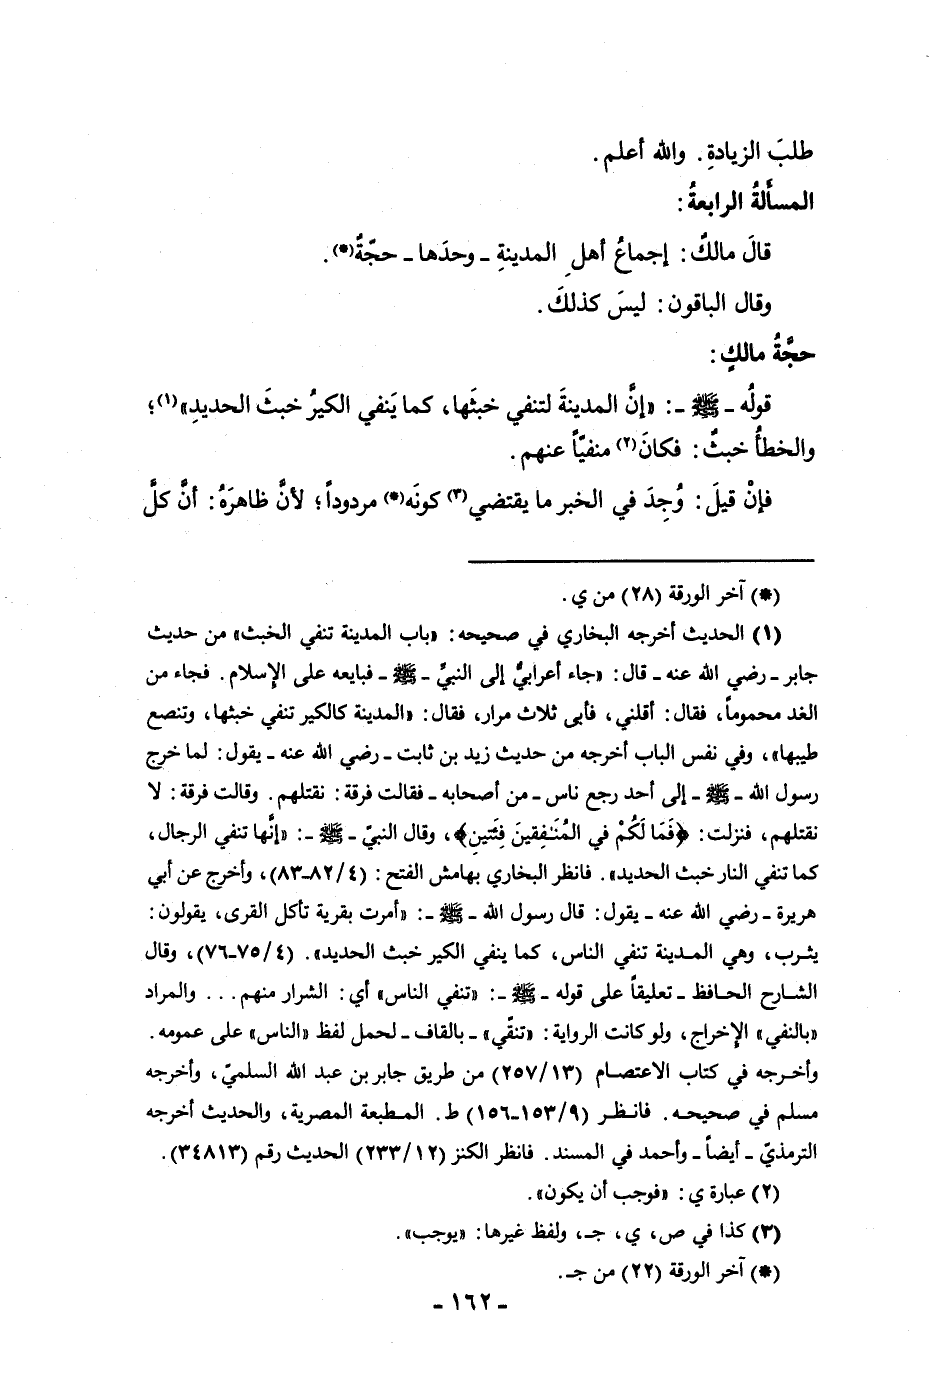 طلبَ الزيادةِ. والله أعلم.
المسألةُ الرابعةُ:
قالَ مالكٌ: إجماعُ أهلِ المدينةِ ـ وحدَها ـ حجّةٌ(*).
وقال الباقون: ليسَ كذلكَ.
حجَّةُ مالكٍ:
قولُه ـ ﷺ ـ: «إنَّ المدينةَ لتنفي خبثَها، كما يَنفي الكيرُ خبثَ الحديدِ»(١)؛
والخطأُ خبثٌ: فكانَ(٢) منفيّاً عنهم.
فإنْ قيلَ: وُجِدَ في الخبر ما يقتضي(٣) كونَه(*) مردوداً؛ لأنَّ ظاهرَهُ: أنَّ كلَّ
(*) آخر الورقة (٢٨) من ي.
(١) الحديث أخرجه البخاري في صحيحه: «باب المدينة تنفي الخبث» من حديث
جابر ـ رضي الله عنه ـ قال: «جاء أعرابيٌّ إلى النبيِّ ـ ﷺ ـ فبايعه على الإسلام. فجاء من
الغد محموماً، فقال: أقلني، فأبى ثلاث مرار، فقال: «المدينة كالكير تنفي خبثها، وتنصع
طيبها»، وفي نفس الباب أخرجه من حديث زيد بن ثابت ـ رضي الله عنه ـ يقول: لما خرج
رسول الله ـ ﷺ ـ إلى أحد رجع ناس ـ من أصحابه ـ فقالت فرقة: نقتلهم. وقالت فرقة: لا
نقتلهم، فنزلت: ﴿فَمَا لَكُمْ في المُنَـٰفِقينَ فِئَتينِ﴾، وقال النبيّ ـ ﷺ ـ: «إنَّها تنفي الرجال،
كما تنفي النار خبث الحديد». فانظر البخاري بهامش الفتح: (٤/٨٢ـ٨٣)، وأخرج عن أبي
هريرة ـ رضي الله عنه ـ يقول: قال رسول الله ـ ﷺ ـ: «أمرت بقرية تأكل القرى، يقولون:
يثرب، وهي المدينة تنفي الناس، كما ينفي الكير خبث الحديد». (٤/٧٥ـ٧٦)، وقال
الشارح الحافظ ـ تعليقاً على قوله ـ ﷺ ـ: «تنفي الناس» أي: الشرار منهم... والمراد
«بالنفي» الإخراج، ولو كانت الرواية: «تنقّي» ـ بالقاف ـ لحمل لفظ «الناس» على عمومه.
وأخرجه في كتاب الاعتصام (١٣/٢٥٧) من طريق جابر بن عبد الله السلميّ، وأخرجه
مسلم في صحيحه. فانظر (٩/١٥٣ـ١٥٦) ط. المطبعة المصرية، والحديث أخرجه
الترمذيّ ـ أيضاً ـ وأحمد في المسند. فانظر الكنز (١٢/٢٣٣) الحديث رقم (٣٤٨١٣).
(٢) عبارة ي: «فوجب أن يكون».
(٣) كذا في ص، ي، جـ، ولفظ غيرها: «يوجب».
(*) آخر الورقة (٢٢) من جـ.
ـ ١٦٢ ـ